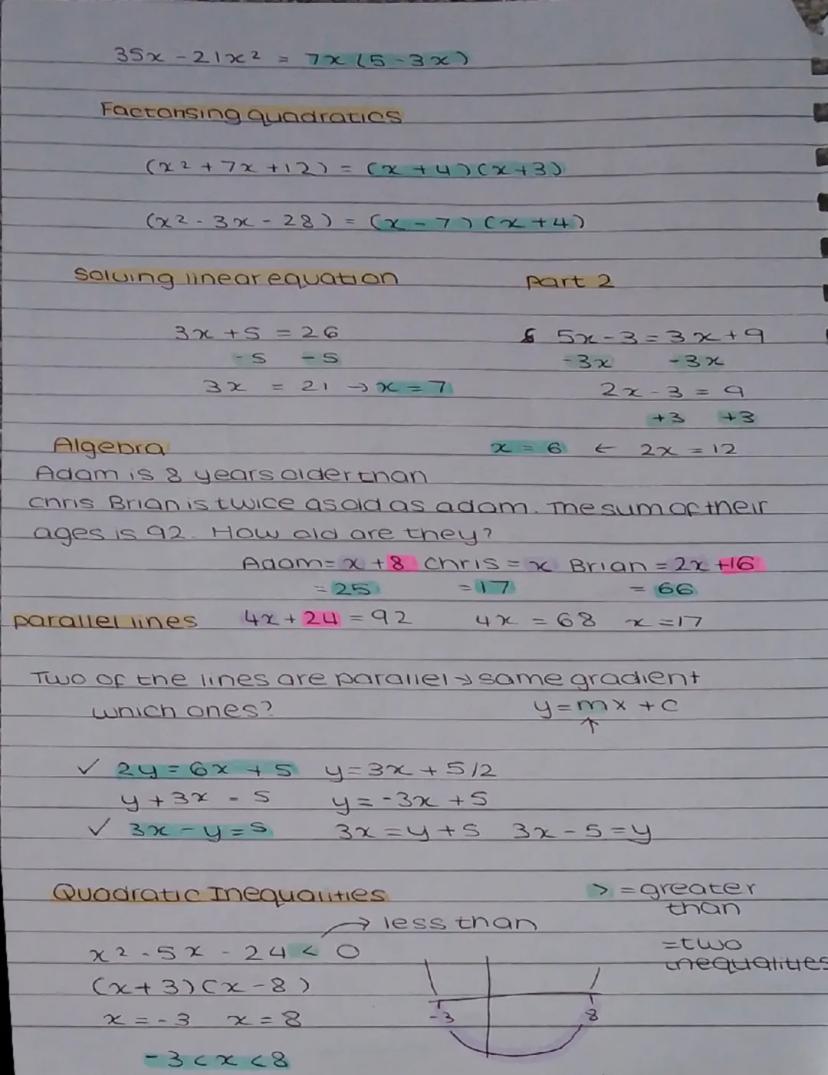 35x - 21x² = 7x(5 - 3x)
Factorising quadratics
(x² + 7x + 12) = (x + 4)(x + 3)
(x² - 3x - 28) = (x - 7)(x + 4)
Solving linear equation
3x + 5 = 26
-5 -5
3x = 21 → x = 7
Part 2
5x - 3 = 3x + 9
-3x -3x
2x - 3 = 9
+3 +3
x = 6 ← 2x = 12
Algebra
Adam is 8 years older than
Chris Brian is twice as old as adam. The sum of their
ages is 92. How old are they?
Adam = x + 8 Chris = x Brian = 2x + 16
= 25 = 17 = 66
parallel lines 4x + 24 = 92 4x = 68 x = 17
Two of the lines are parallel → same gradient
which ones? y = mx + c
↑
✓ 2y = 6x + 5 y = 3x + 5/2
y + 3x - 5 y = -3x + 5
✓ 3x - y = 5 3x = y + 5 3x - 5 = y
Quadratic Inequalities
> = greater
than
= two
inequalities
→ less than
x² - 5x - 24 < 0
(x + 3)(x - 8)
x = -3 x = 8
-3 8
-3 < x < 8